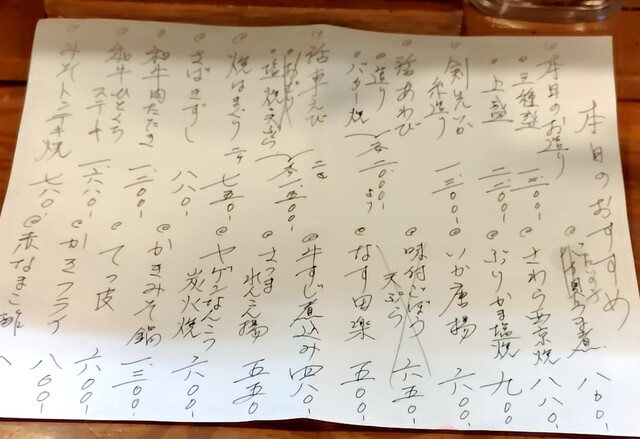 本日のおすすめ
@本日のお造り
・三種盛 一二〇〇-
・上盛 二二〇〇-
@剣先いか
糸造り 一三〇〇-
@活あわび
・造り
・バター焼 各二〇〇〇-より
@活車えび 二尾
・おどり
・塩焼 各一五〇〇-
@焼はまぐり 二ケ 七五〇-
@さばきずし 八八〇-
@和牛肉たたき 一三〇〇-
@和牛ひとくち
ステーキ 一六八〇-
@みそトンテキ焼 七八〇-
うま煮 八〇〇-
@さわら西京焼 八八〇-
@ぶりかま塩焼 九〇〇
@いか唐揚 六〇〇-
@味付ごぼう
天ぷら 六五〇
@なす田楽 五〇〇
@牛すじ煮込み 四八〇-
@さつま
れんこん揚 五五〇
@ヤゲンなんこつ
炭火焼 六〇〇-
@かきみそ鍋 一三〇〇-
@てっ皮 六〇〇-
@かきフライ 八〇〇-
@赤なまこ酢 八